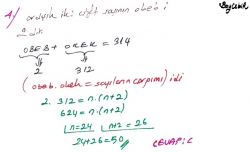 4/ ardışık iki çift sayının obeb i
2 dir
OBEB + OKEK = 314
2 312
(obeb. okek = sayıların çarpımı) idi
2. 312 = n.(n+2)
624 = n.(n+2)
n=24 n+2 = 26
24+26=50
CEVAP C